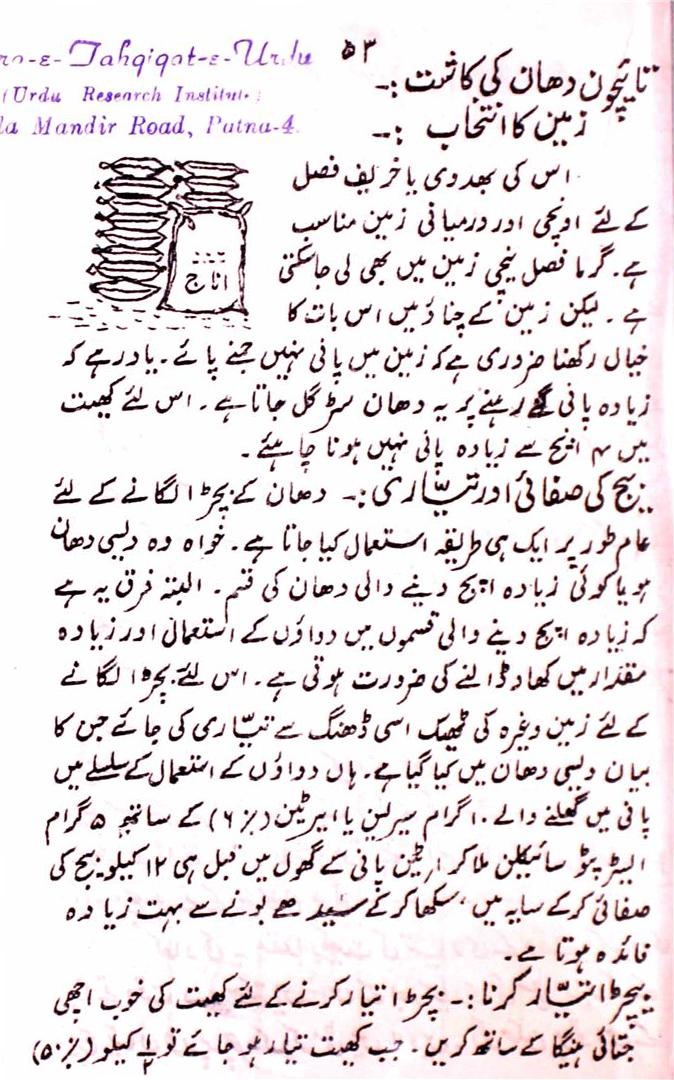 ro-e-Tahqiqat-e-Urdu
(Urdu Research Institute)
la Mandir Road, Patna-4.
۵۳
تائیچون دھان کی کاشت :۔
زمین کا انتخاب :۔
اس کی بھدوی یا خریف فصل
کے لئے اونچی اور درمیانی زمین مناسب
ہے۔ گرما فصل نیچی زمین میں بھی لی جاسکتی
ہے ۔ لیکن زمین کے چناؤ میں اس بات کا
اناج
خیال رکھنا ضروری ہے کہ زمین میں پانی نہیں جمنے پائے ۔ یاد رہے کہ
زیادہ پانی لگے رہنے پر یہ دھان سڑ گل جاتا ہے ۔ اس لئے کھیت
میں ۴ انچ سے زیادہ پانی نہیں ہونا چاہئے ۔
بیج کی صفائی اور تیاری :۔ دھان کے بچڑا لگانے کے لئے
عام طور پر ایک ہی طریقہ استعمال کیا جاتا ہے ۔ خواہ وہ دیسی دھان
ہو یا کوئی زیادہ اپج دینے والی دھان کی قسم ۔ البتہ فرق یہ ہے
کہ زیادہ اپج دینے والی قسموں میں دواؤں کے استعمال اور زیادہ
مقدار میں کھاد ڈالنے کی ضرورت ہوتی ہے ۔ اس لئے بچڑا لگانے
کے لئے زمین وغیرہ کی ٹھیک اسی ڈھنگ سے تیّاری کی جائے جن کا
بیان دیسی دھان میں کیا گیا ہے ۔ ہاں دواؤں کے استعمال کے سلسلے میں
پانی میں گھلنے والے ۱۰ گرام سیرلین یا ایرٹین (۶٪) کے ساتھ ۵ گرام
اسٹرپٹو سائیکلن ملا کر ٹین پانی کے گھول میں قبل ہی ۱۲ کیلو بیج کی
صفائی کر کے سایہ میں سکھا کر کے بونے سے بہت زیادہ
فائدہ ہوتا ہے ۔
بچڑا تیّار کرنا :۔ بچڑا تیار کرنے کے لئے کھیت کی خوب اچھی
جتائی ہینگا کے ساتھ کریں ۔ جب کھیت تیار ہو جائے تو ۱/۲ کیلو (۵۰٪)